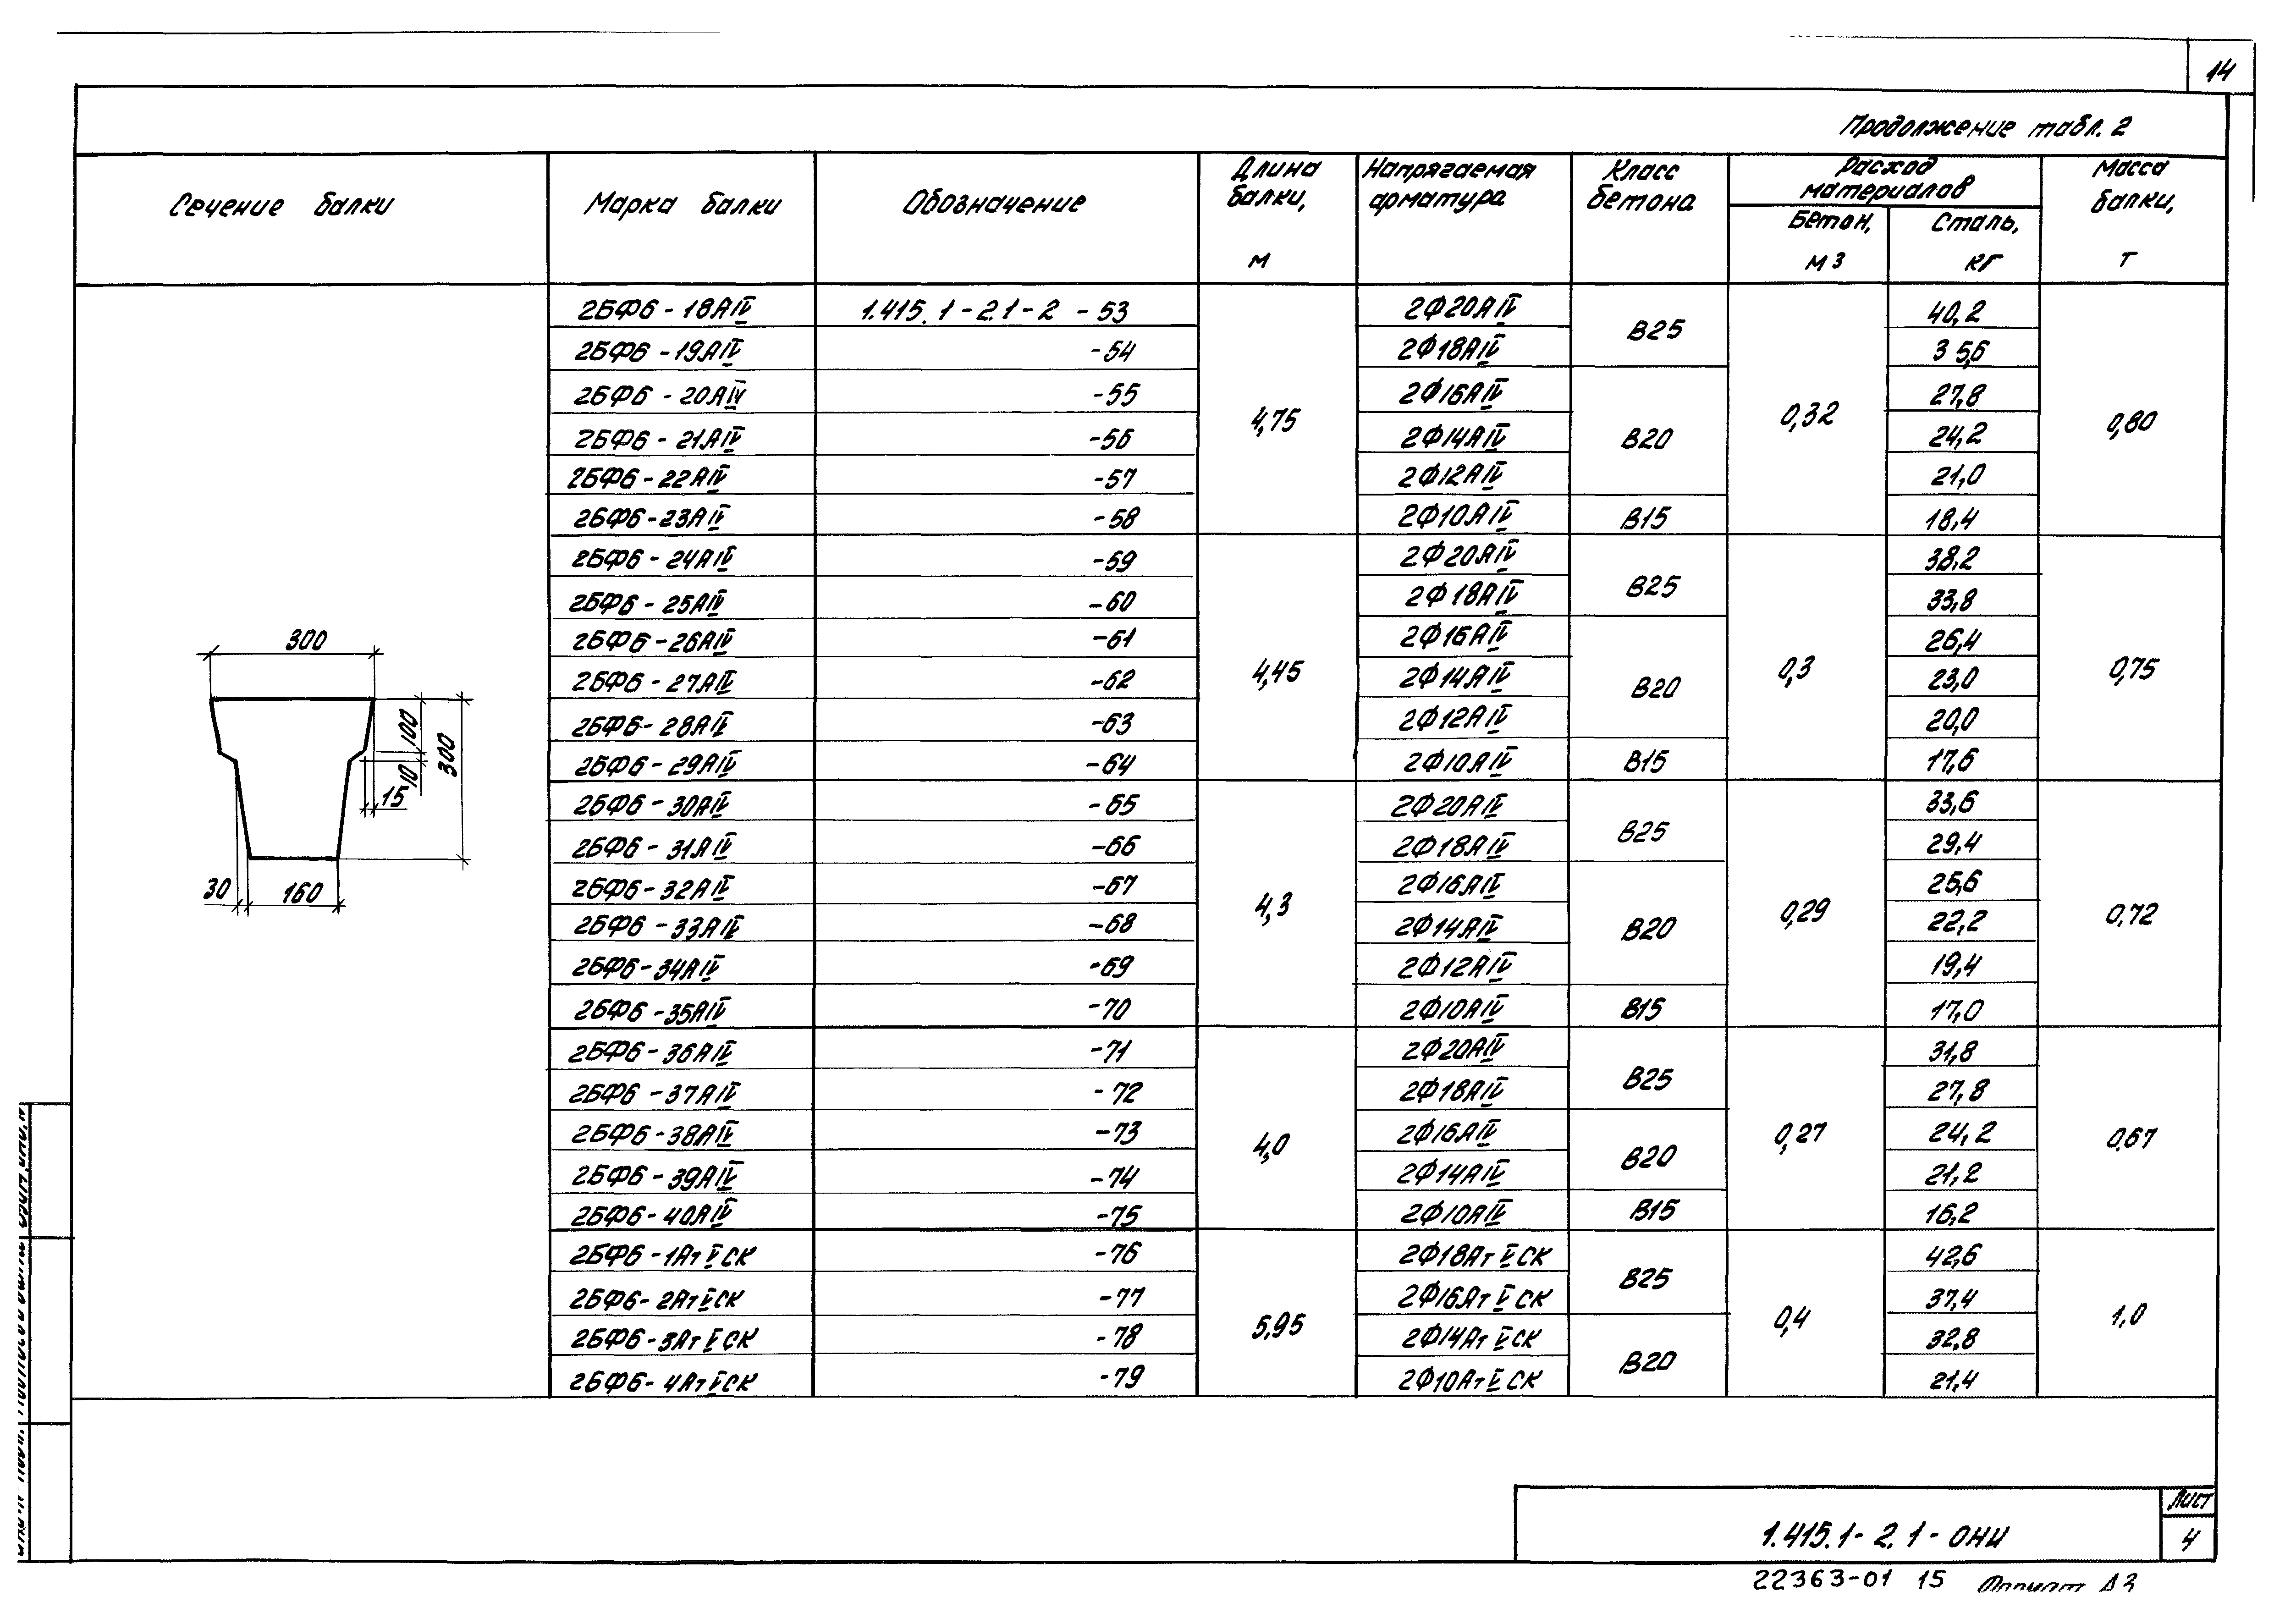 14
Продолжение табл. 2
Сечение балки
Марка балки
Обозначение
Длина балки, м
Напрягаемая арматура
Класс бетона
Расход материалов
Бетон, м3
Сталь, кг
Масса балки, т
2БФ6-18АIV 1.415.1-2.1-2 -53 4,75 2Ф20АIV В25 0,32 40,2 0,80
2БФ6-19АIV -54 2Ф18АIV 35,6
2БФ6-20АIV -55 2Ф16АIV В20 27,8
2БФ6-21АIV -56 2Ф14АIV 24,2
2БФ6-22АIV -57 2Ф12АIV 21,0
2БФ6-23АIV -58 2Ф10АIV В15 18,4
2БФ6-24АIV -59 4,45 2Ф20АIV В25 0,3 38,2 0,75
2БФ6-25АIV -60 2Ф18АIV 33,8
2БФ6-26АIV -61 2Ф16АIV В20 26,4
2БФ6-27АIV -62 2Ф14АIV 23,0
2БФ6-28АIV -63 2Ф12АIV 20,0
2БФ6-29АIV -64 2Ф10АIV В15 17,6
2БФ6-30АIV -65 4,3 2Ф20АIV В25 0,29 33,6 0,72
2БФ6-31АIV -66 2Ф18АIV 29,4
2БФ6-32АIV -67 2Ф16АIV В20 25,6
2БФ6-33АIV -68 2Ф14АIV 22,2
2БФ6-34АIV -69 2Ф12АIV 19,4
2БФ6-35АIV -70 2Ф10АIV В15 17,0
2БФ6-36АIV -71 4,0 2Ф20АIV В25 0,27 31,8 0,67
2БФ6-37АIV -72 2Ф18АIV 27,8
2БФ6-38АIV -73 2Ф16АIV В20 24,2
2БФ6-39АIV -74 2Ф14АIV 21,2
2БФ6-40АIV -75 2Ф10АIV В15 16,2
2БФ6-1АтVСК -76 5,95 2Ф18АтVСК В25 0,4 42,6 1,0
2БФ6-2АтVСК -77 2Ф16АтVСК 37,4
2БФ6-3АтVСК -78 2Ф14АтVСК В20 32,8
2БФ6-4АтVСК -79 2Ф10АтVСК 21,4
300
100
300
10
15
30
160
1.415.1-2.1-ОНИ
Лист
4
22363-01 15 Формат А3